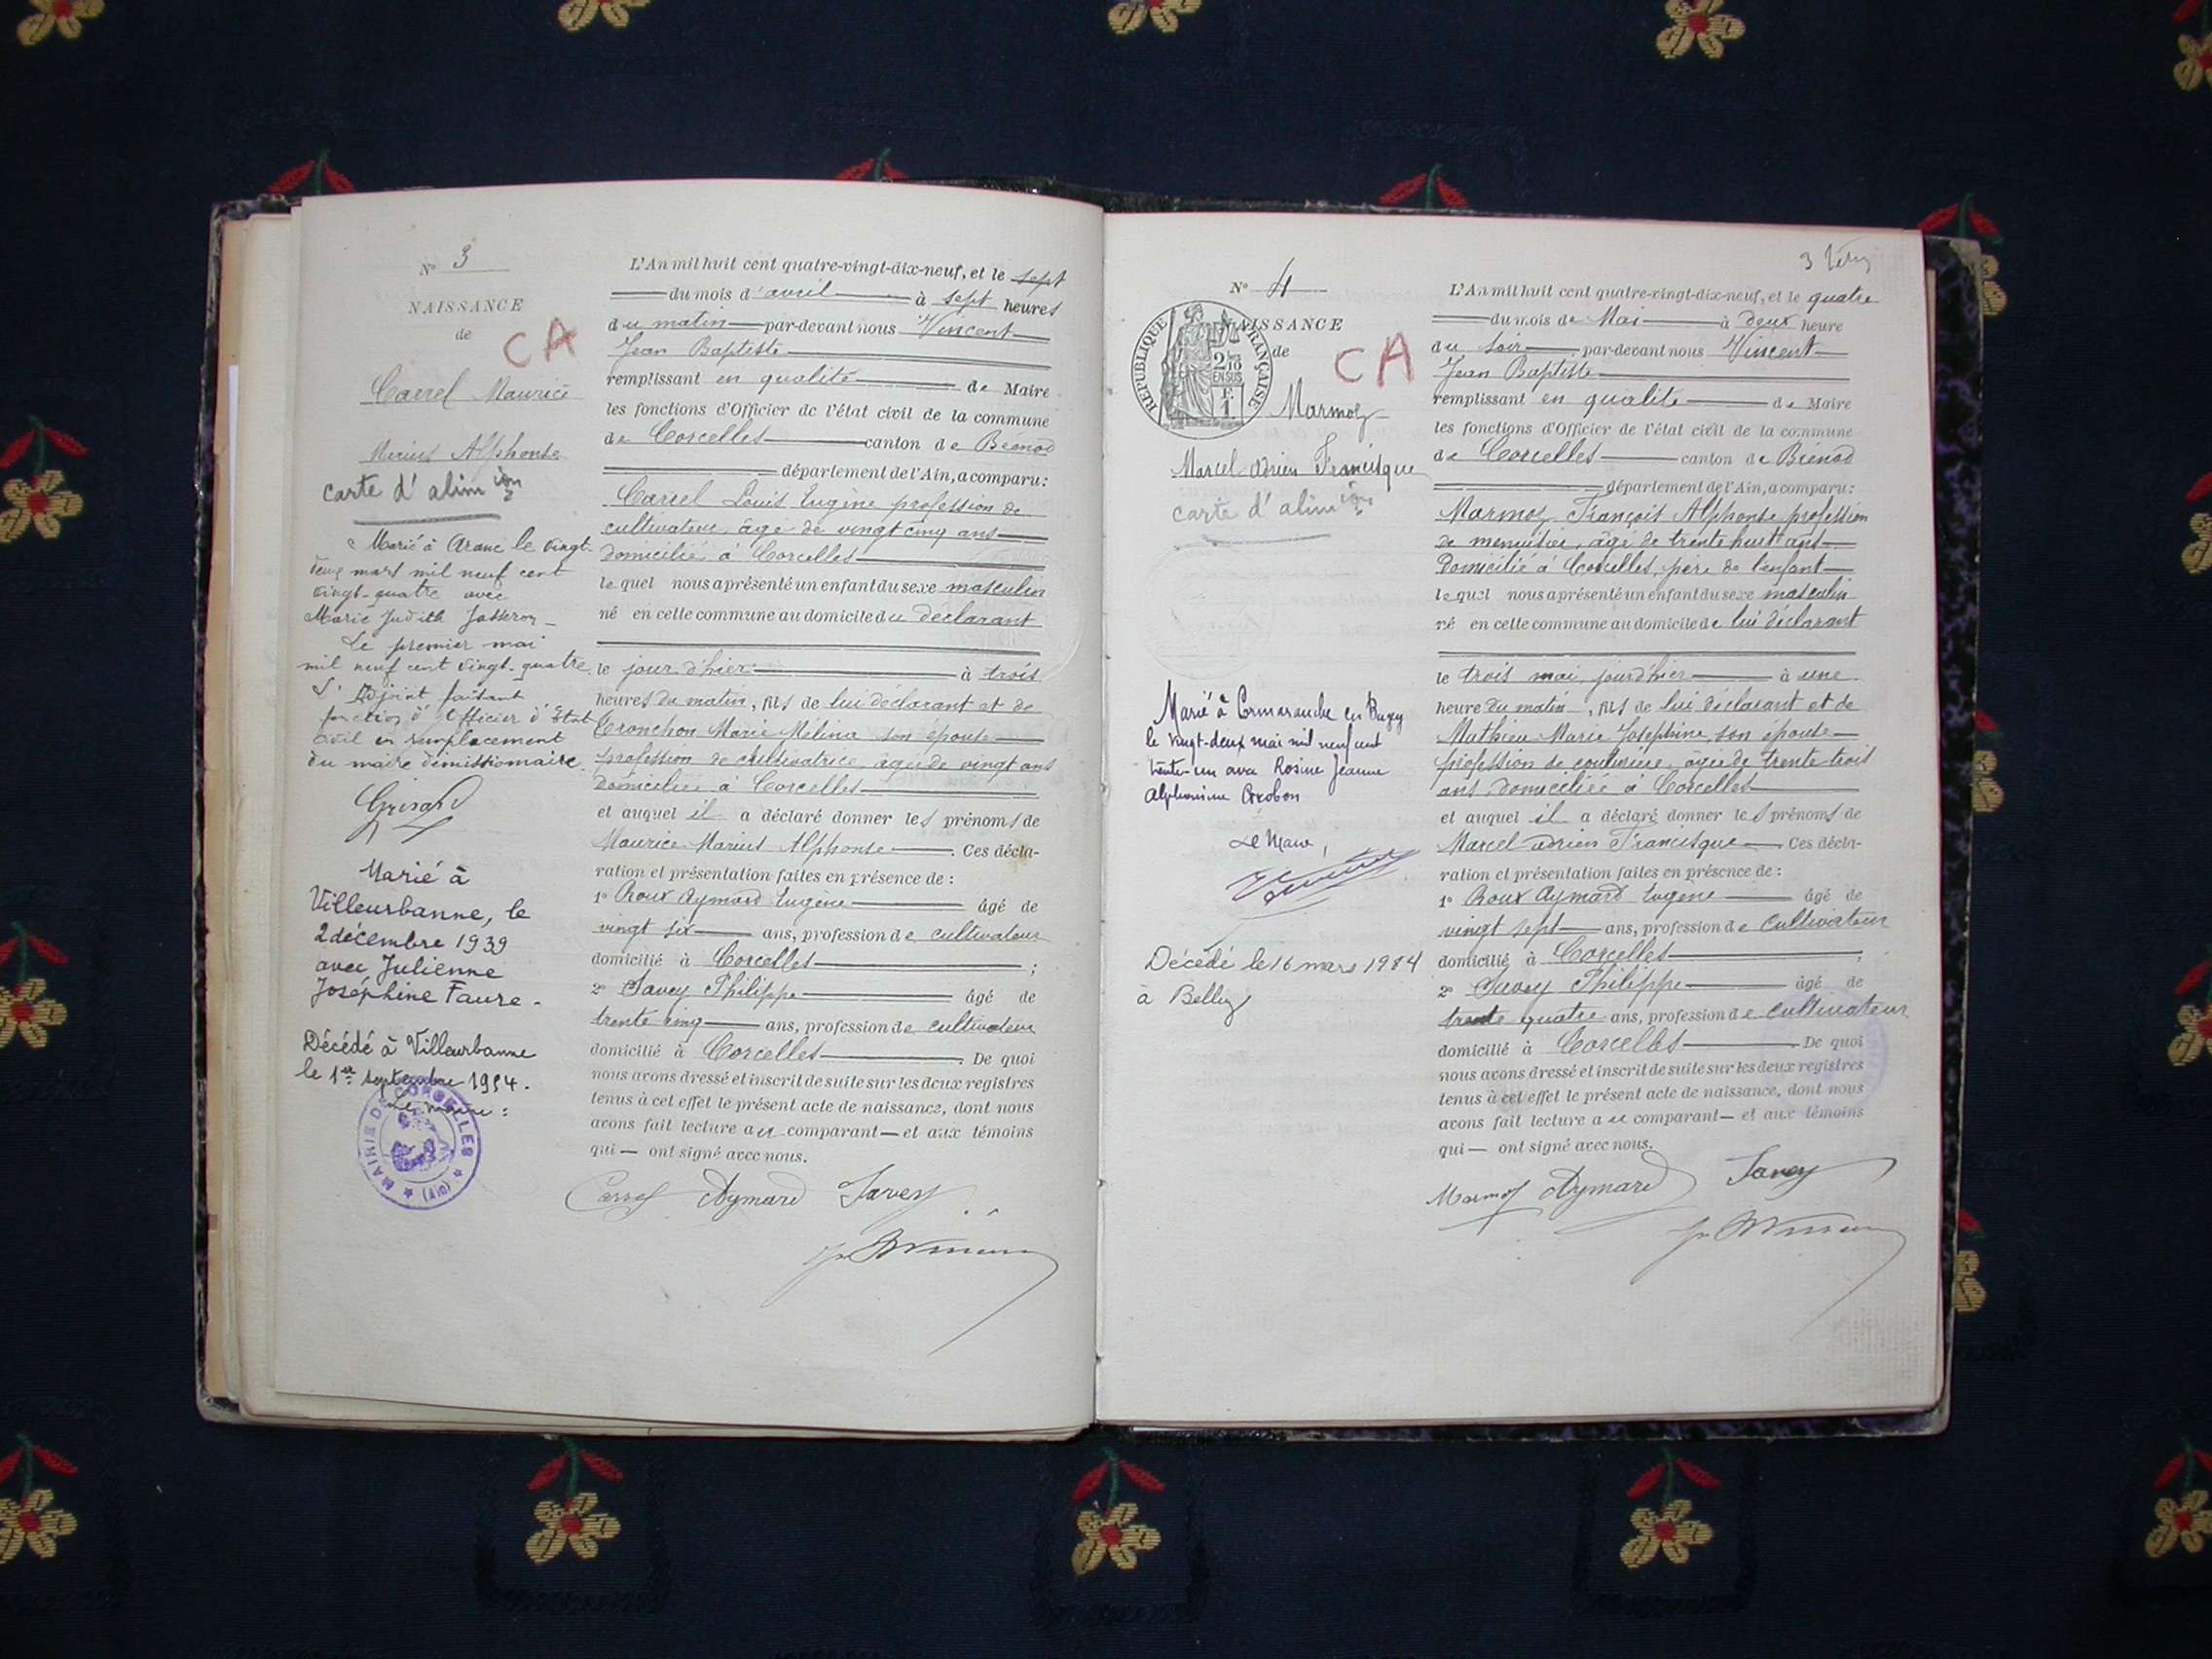 N° 3
NAISSANCE
de
CA
Carrel Maurice
Marius Alphonse
carte d'alim ion
Marié à Aranc le vingt-
deux mars mil neuf cent
vingt-quatre avec
Marie Judith Josserон
Le premier mai
mil neuf cent vingt-quatre
L'Adjoint faisant
fonction d'Officier d'Etat
civil en remplacement
du maire démissionnaire
Marié à
Villeurbanne, le
2 décembre 1939
avec Julienne
Joséphine Faure.
Décédé à Villeurbanne
le 1er septembre 1954.
Le maire :
MAIRIE DE CORCELLES (Ain)
L'An mil huit cent quatre-vingt-dix-neuf, et le sept
du mois d'avril à sept heures
du matin par-devant nous Vincent
Jean Baptiste
remplissant en qualité de Maire
les fonctions d'Officier de l'état civil de la commune
de Corcelles canton de Brénod
département de l'Ain, a comparu :
Carrel Louis Eugène profession de
cultivateur, âgé de vingt cinq ans
domicilié à Corcelles
lequel nous a présenté un enfant du sexe masculin
né en cette commune au domicile du déclarant
le jour d'hier à trois
heures du matin, fils de lui déclarant et de
Tronchon Marie Mélina son épouse
profession de cultivatrice, âgée de vingt ans
domiciliée à Corcelles
et auquel il a déclaré donner les prénoms de
Maurice Marius Alphonse. Ces décla-
ration et présentation faites en présence de :
1° Roux Aymard Eugène âgé de
vingt six ans, profession de cultivateur
domicilié à Corcelles ;
2° Savey Philippe âgé de
trente cinq ans, profession de cultivateur
domicilié à Corcelles. De quoi
nous avons dressé et inscrit de suite sur les deux registres
tenus à cet effet le présent acte de naissance, dont nous
avons fait lecture au comparant et aux témoins
qui ont signé avec nous.
Carrel Aymard Savey
N° 4
NAISSANCE
de
RÉPUBLIQUE FRANÇAISE
2/10 EN SUS
F. 1
CA
Marmoz
Marcel Adrien Francisque
carte d'alim ion
Marié à Cormaranche en Bugey
le vingt-deux mai mil neuf cent
trente-un avec Rosine Jeanne
Alphonsine
Le Maire,
Décédé le 16 mars 1984
à Belley
3
L'An mil huit cent quatre-vingt-dix-neuf, et le quatre
du mois de Mai à deux heure
du soir par-devant nous Vincent
Jean Baptiste
remplissant en qualité de Maire
les fonctions d'Officier de l'état civil de la commune
de Corcelles canton de Brénod
département de l'Ain, a comparu :
Marmoz François Alphonse profession
de menuisier, âgé de trente huit ans
domicilié à Corcelles, père de l'enfant
lequel nous a présenté un enfant du sexe masculin
né en cette commune au domicile de lui déclarant
le trois mai, jour d'hier à une
heure du matin, fils de lui déclarant et de
Mathieu Marie Joséphine, son épouse
profession de couturière, âgée de trente trois
ans domiciliée à Corcelles
et auquel il a déclaré donner les prénoms de
Marcel Adrien Francisque Ces décla-
ration et présentation faites en présence de :
1° Roux Aymard Eugène âgé de
vingt sept ans, profession de cultivateur
domicilié à Corcelles ;
2° Savey Philippe âgé de
trente quatre ans, profession de cultivateur
domicilié à Corcelles. De quoi
nous avons dressé et inscrit de suite sur les deux registres
tenus à cet effet le présent acte de naissance, dont nous
avons fait lecture au comparant et aux témoins
qui ont signé avec nous.
Marmoz Aymard Savey